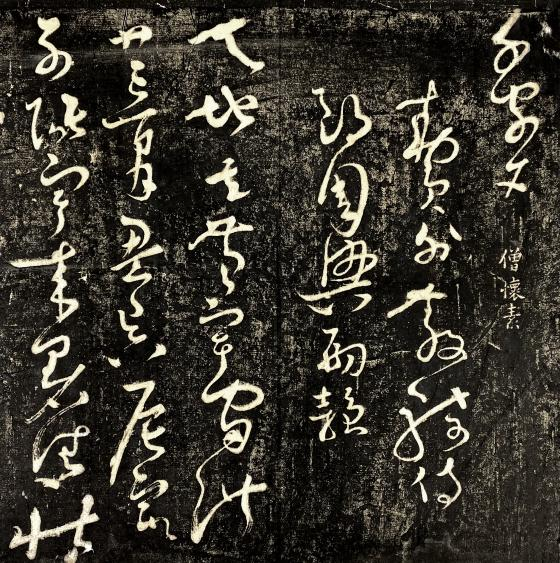 千字文
僧懷素
勅員外散騎侍
郎周興嗣韻
天地玄黃宇宙洪
荒日月盈昃辰宿
列張寒來暑往秋